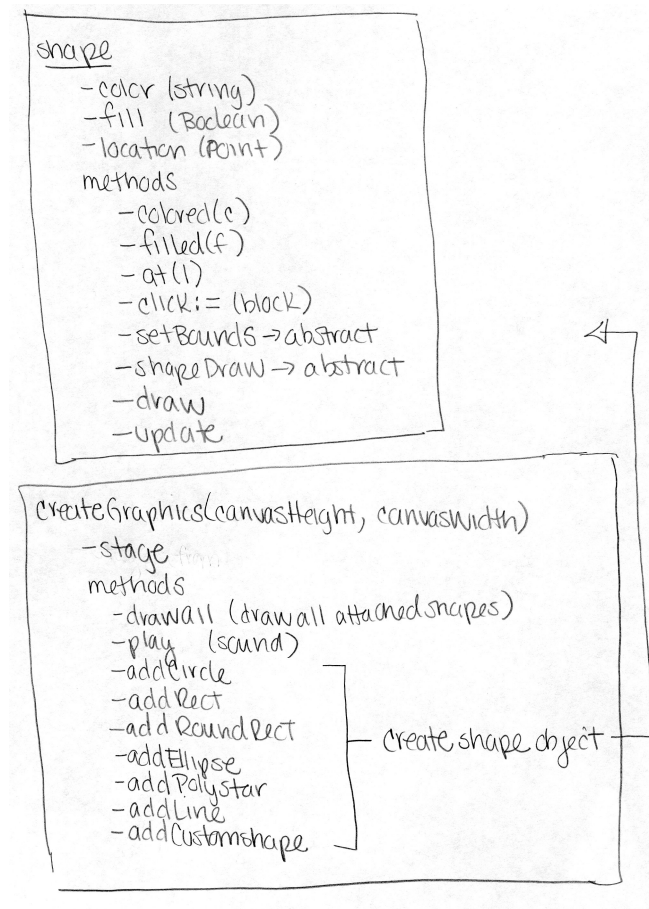 shape
-color (string)
-fill (Boolean)
-location (Point)
methods
-colored(c)
-filled(f)
-at(l)
-click:= (block)
-setBounds → abstract
-shapeDraw → abstract
-draw
-update
createGraphics(canvasHeight, canvasWidth)
-stage
methods
-drawall (draw all attached shapes)
-play (sound)
-addCircle
-addRect
-addRoundRect
-addEllipse
-addPolystar
-addLine
-addCustomshape
create shape object